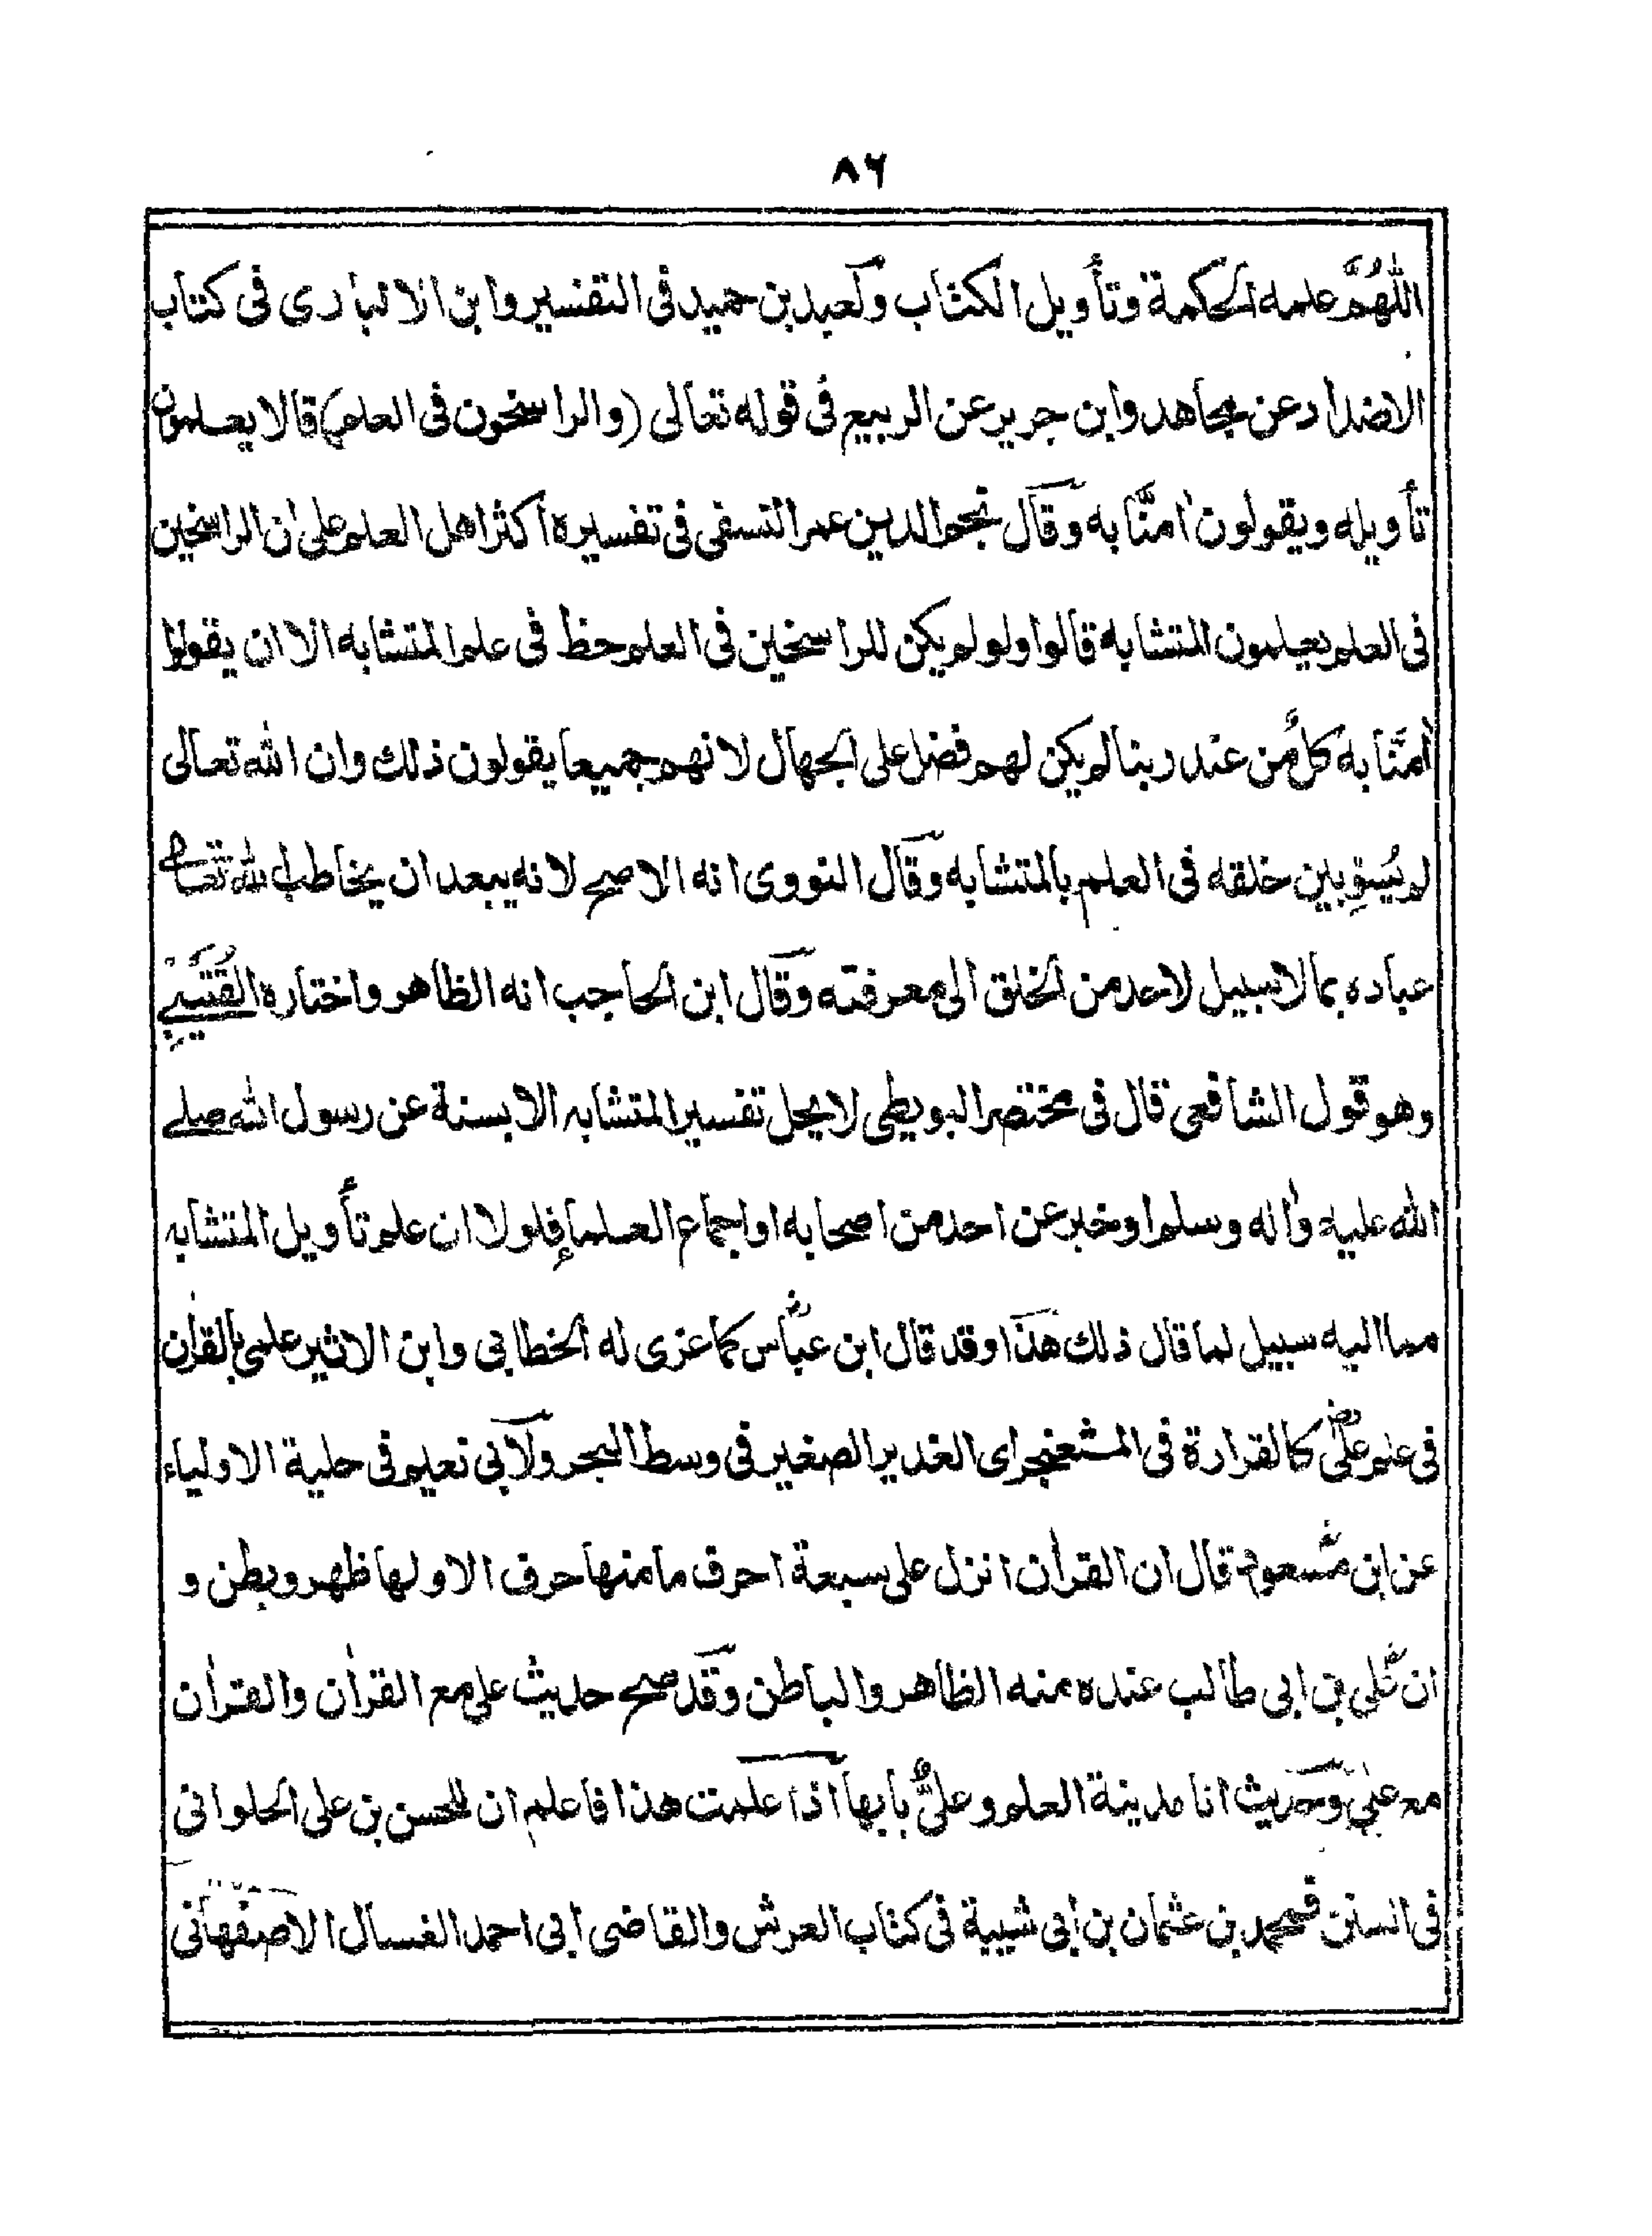 ٨٦
اللّٰهُمَّ علمه الحكمة وتأويل الكتاب ولعبد بن حميد فى التفسير وابن الانبارى فى كتاب
الاضداد عن مجاهد وابن جرير عن الربيع فى قوله تعالى (والراسخون فى العلم) قالا يعلمون
تأويله ويقولون اٰمنّا به وقال نجم الدين عمر النسفى فى تفسيره أكثر اهل العلم على ان الراسخين
فى العلم يعلمون المتشابه قالوا ولو لم يكن للراسخين فى العلم حظ فى علم المتشابه الا ان يقولوا
اٰمنَّا به كلٌّ من عند ربنا لم يكن لهم فضل على الجهال لانهم جميعا يقولون ذلك وان الله تعالى
لم يُسوِّ بين خلقه فى العلم بالمتشابه وقال النووى انه الاصح لانه يبعد ان يخاطب الله تعالى
عباده بما لا سبيل لاحد من الخلق الى معرفته وقال ابن الحاجب انه الظاهر واختاره القُتَيْبِي
وهو قول الشافعى قال فى مختصر البويطى لا يحل تفسير المتشابه الا بسنة عن رسول الله صلے
الله عليه واٰله وسلم او خبر عن احد من اصحابه او اجماع العلماء فلولا ان علم تأويل المتشابه
مما اليه سبيل لما قال ذلك هذا وقد قال ابن عباسؓ كما عزى له الخطابي وابن الاثير علمى بالقراٰن
فى علم علىؓ كالقرارة فى المثعنجر اى الغدير الصغير فى وسط البحر ولابي نعيم فى حلية الاولياء
عن ابن مسعودؓ قال ان القراٰن انزل على سبعة احرف ما منها حرف الا ولها ظهر وبطن و
ان علىؓ بن ابى طالب عنده منه الظاهر والباطن وقد صح حديث على مع القراٰن والقراٰن
مع على وحديث انا مدينة العلم وعلىٌّ بابها اذا علمت هذا فاعلم ان للحسن بن على الحلوانى
فى السنن ومحمد بن عثمان بن ابى شيبة فى كتاب العرش والقاضى ابى احمد الغسال الاصفهانى